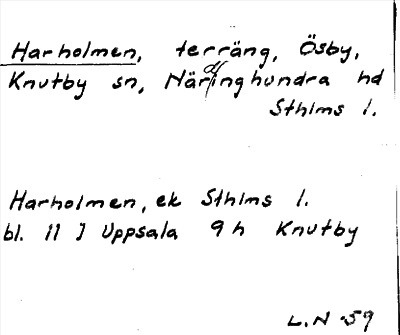 Harholmen, terräng, Ösby,
Knutby sn, Närdinghundra hd
Sthlms l.
Harholmen, ek Sthlms l.
bl. 11 I Uppsala 9h Knutby
L.N -59